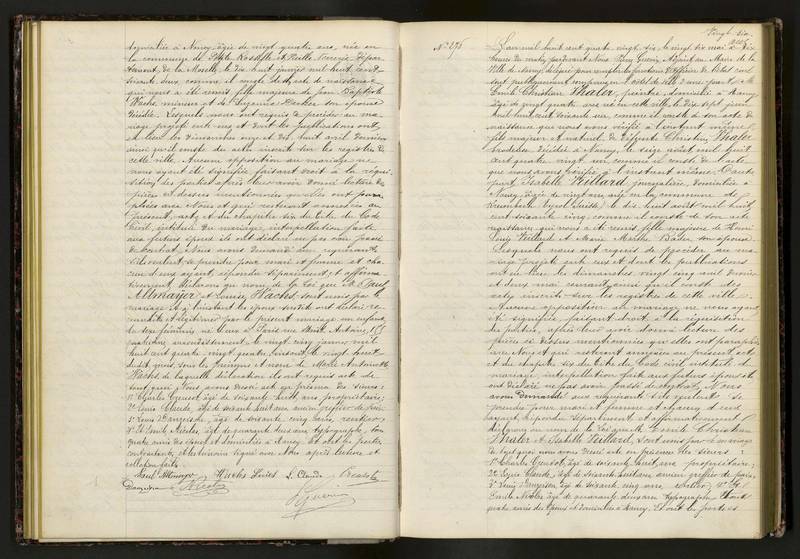 domiciliée à Nancy, âgée de vingt quatre ans, née en
la commune de
de la Moselle, le dix huit janvier mil huit cent
soixante deux, comme il conste de l'acte de naissance
qui nous a été remis, fille majeure de Jean Baptiste
Wachs, mineur et de Suzanne Becker son épouse
décédée. Lesquels nous ont requis de procéder au ma-
riage projeté entre eux et dont les publications ont
eu lieu les dimanches onze et dix huit avril dernier
ainsi qu'il conste des actes inscrits sur les registres de
cette ville. Aucune opposition au mariage ne
nous ayant été signifiée faisant droit à la réqui-
sition des parties après leur avoir donné lecture des
pièces ci dessus mentionnées qu'elles ont para-
phées avec Nous et qui resteront annexées au
présent acte et du chapitre six du titre du Code
Civil, intitulé du mariage, interpellation faite
aux futurs époux ils ont déclaré ne pas avoir passé
de contrat. Nous avons demandé aux requérants
s'ils veulent se prendre pour mari et femme et cha-
cun d'eux ayant répondu séparément et affirma-
tivement, déclarons au nom de la Loi que M. Paul
Allmayer et Louise Wachs, sont unis par le
mariage et à l'instant les époux susdits ont déclaré re-
connaître et légitimer par le présent mariage un enfant
du sexe féminin, né à Paris rue Saint Antoine,
arrondissement le vingt cinq janvier mil
huit cent quatre-vingt quatre, inscrit le vingt huit
dudit mois, sous les prénoms et nom de Marie Antoinette
Wachs de laquelle déclaration ils ont requis acte. De
tout quoi Nous avons dressé acte en présence des sieurs :
1° Charles Geusot, âgé de soixante huit ans, propriétaire;
2° Louis Claude, âgé de soixante huit ans, ancien greffier de paix;
3° Louis Dangersen, âgé de soixante cinq ans, rentier;
4° Emile Nicolas, âgé de quarante deux ans typographe, tous
quatre amis des époux et domiciliés à Nancy. Et ont les parties
contractantes, et les témoins signé avec Nous après lecture et
collation faite.
Paul Allmayer Wachs Louise L. Claude
Nicolas
Guerin
Vingt six
N° 276
L'an mil huit cent quatre vingt six, le vingt six mai à dix
heures du matin, pardevant Nous Guerin, Adjoint au Maire de la
Ville de Nancy, délégué pour remplir les fonctions d'Officier de l'Etat civil
sont publiquement comparus en l'hôtel de ville d'une part M.
Emile Christian Thaler, peintre, domicilié à Nancy
âgé de vingt quatre ans né en cette ville le dix sept juin
mil huit cent soixante un, comme il conste de son acte de
naissance que nous avons vérifié à l'instant même
fils majeur et naturel de Christine Thaler
brodeuse, décédée à Nancy, le seize août mil huit
cent quatre vingt un comme il conste de l'acte
que nous avons vérifié à l'instant même. D'autre
part Isabelle Veillard, journalière, domiciliée à
Nancy, âgée de vingt ans née en la commune de
(Suisse) le dix huit août mil huit
cent soixante cinq, comme il conste de son acte
registraire qui nous a été remis fille majeure de Henri
Louis Veillard et Marie Marthe Bader son épouse
Lesquels nous ont requis de procéder au ma-
riage projeté entre eux et dont les publications
ont eu lieu les dimanches vingt cinq avril dernier
et deux mai courant, ainsi qu'il conste des
actes inscrits sur les registres de cette ville.
Aucune opposition au mariage ne nous ayant
été signifiée faisant droit à la réquisition
des parties, après leur avoir donné lecture des
pièces ci dessus mentionnées qu'elles ont paraphées
avec Nous et qui resteront annexées au présent acte
et du chapitre six du titre du Code civil intitulé du
mariage, interpellation faite aux futurs époux ils
ont déclaré ne pas avoir passé de contrat, Nous
avons demandé aux requérants s'ils veulent se
prendre pour mari et femme et chacun d'eux
ayant répondu séparément et affirmativement
déclarons au nom de la Loi que M. Emile Christian
Thaler et Isabelle Veillard, sont unis par le mariage
De tout quoi nous avons dressé acte en présence des sieurs :
1° Charles Geusot, âgé de soixante huit ans propriétaire;
2° Louis Claude, âgé de soixante huit ans, ancien greffier de paix;
3° Louis Dangersen, âgé de soixante cinq ans, rentier; 4°
Emile Nicolas âgé de quarante deux ans typographe, tous
quatre amis des époux et domiciliés à Nancy. Et ont les parties